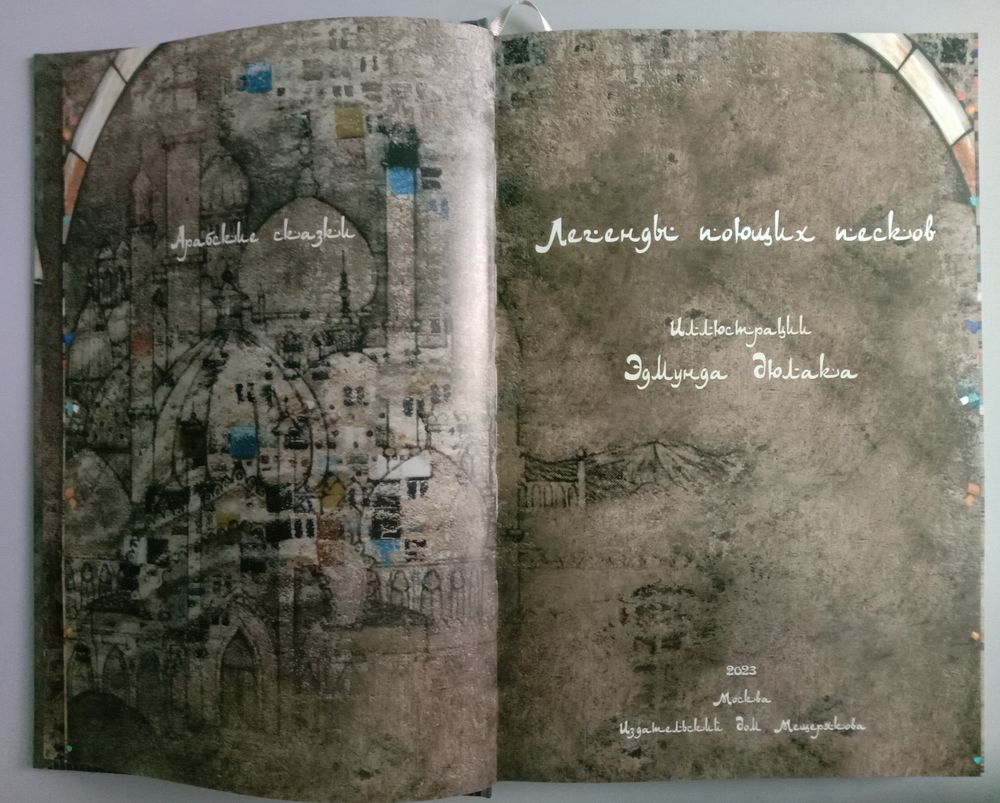 Арабские сказки
Легенды поющих песков
Иллюстрации
Эдмунда Дюлака
2023
Москва
Издательский дом Мещерякова